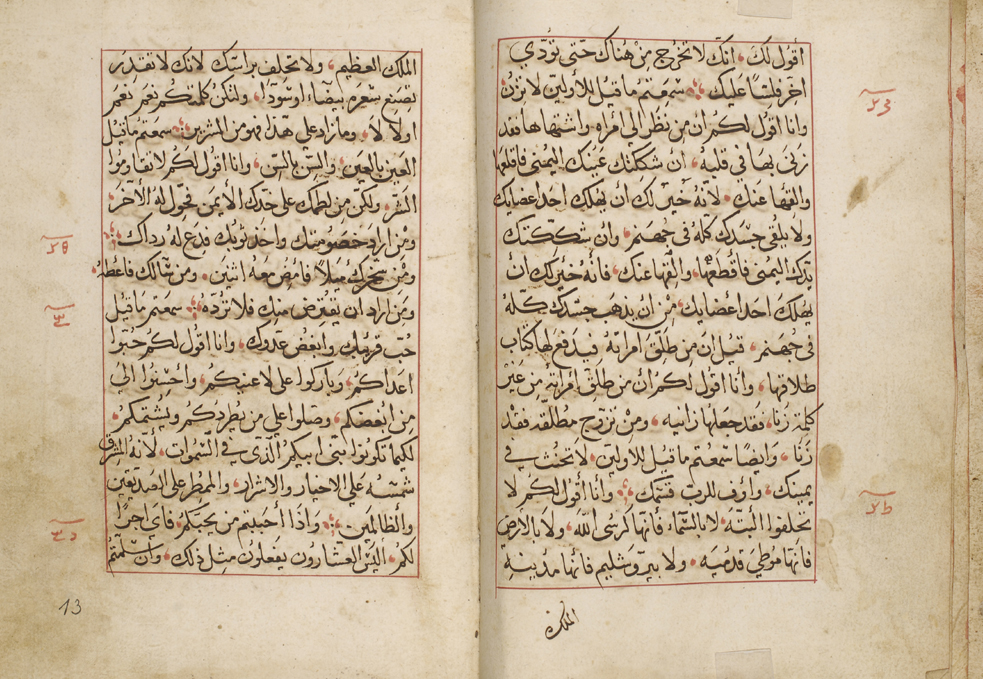 أقول لك، انك لا تخرج من هناك حتى تؤدي
آخر فلسًا عليك سمعتم ما قيل للأولين لا تزن
وانا اقول لكم ان من نظر الى امراه واشتهاها فقد
زنى بها في قلبه، ان شككتك عينك اليمنى فاقلعها
والقها عنك لانه خير لك ان يهلك احد اعضايك
ولا يلقى جسدك كله في جهنم وان شككتك
يدك اليمنى فاقطعها والقها عنك فانه خير لك ان
يهلك احد اعضايك من ان يذهب جسدك كله
في جهنم، قيل ان من طلق امراته فيدفع لها كتاب
طلاقها، وانا اقول لكم ان من طلق امراته من غير
كلمة زنا، فقد جعلها زانيه، ومن تزوج مطلقه فقد
زنا، وايضًا سمعتم ما قيل للاولين لا تحنث في
يمينك، وأوف للرب قسمك وأنا أقول لكم لا
تحلفوا البته لا بالسماء فانها كرسى الله، ولا بالارض
فانها موطي قدميه ولا بيروشليم فانها مدينه
الملك
الملك العظيم، ولا تحلف براسك لانك لا تقدر
تصنع شعره بيضاء او سودا، ولتكن كلمتكم نعم نعم
او لا لا، وما زاد على هذا فهو من الشرير سمعتم ما قيل
العين بالعين، والسن بالسن، وانا اقول لكم لا تقاوموا
الشر، ولكن من لطمك على خدك الأيمن فحول له الآخر
ومن اراد خصومتك واخذ ثوبك فدع له رداك
ومن سخرك ميلاً فامض معه اثنين، ومن سالك فاعطه
ومن اراد ان يقترض منك فلا ترده سمعتم ما قيل
حب قريبك وابغض عدوك، وانا اقول لكم حبوا
اعداكم، وباركوا على لاعنيكم، وأحسنوا الى
من ابغضكم، وصلوا على من يطردكم ويشتمكم
لكيما تكونوا بنى ابيكم الذي في السموات، لأنه المشرق
شمسه على الاخيار والاشرار، والممطر على الصديقين
والظالمين، واذا أحببتم من يحبكم فاى اجرًا
لكم، اليس العشارون يفعلون مثل ذلك، وان سلمتم
13